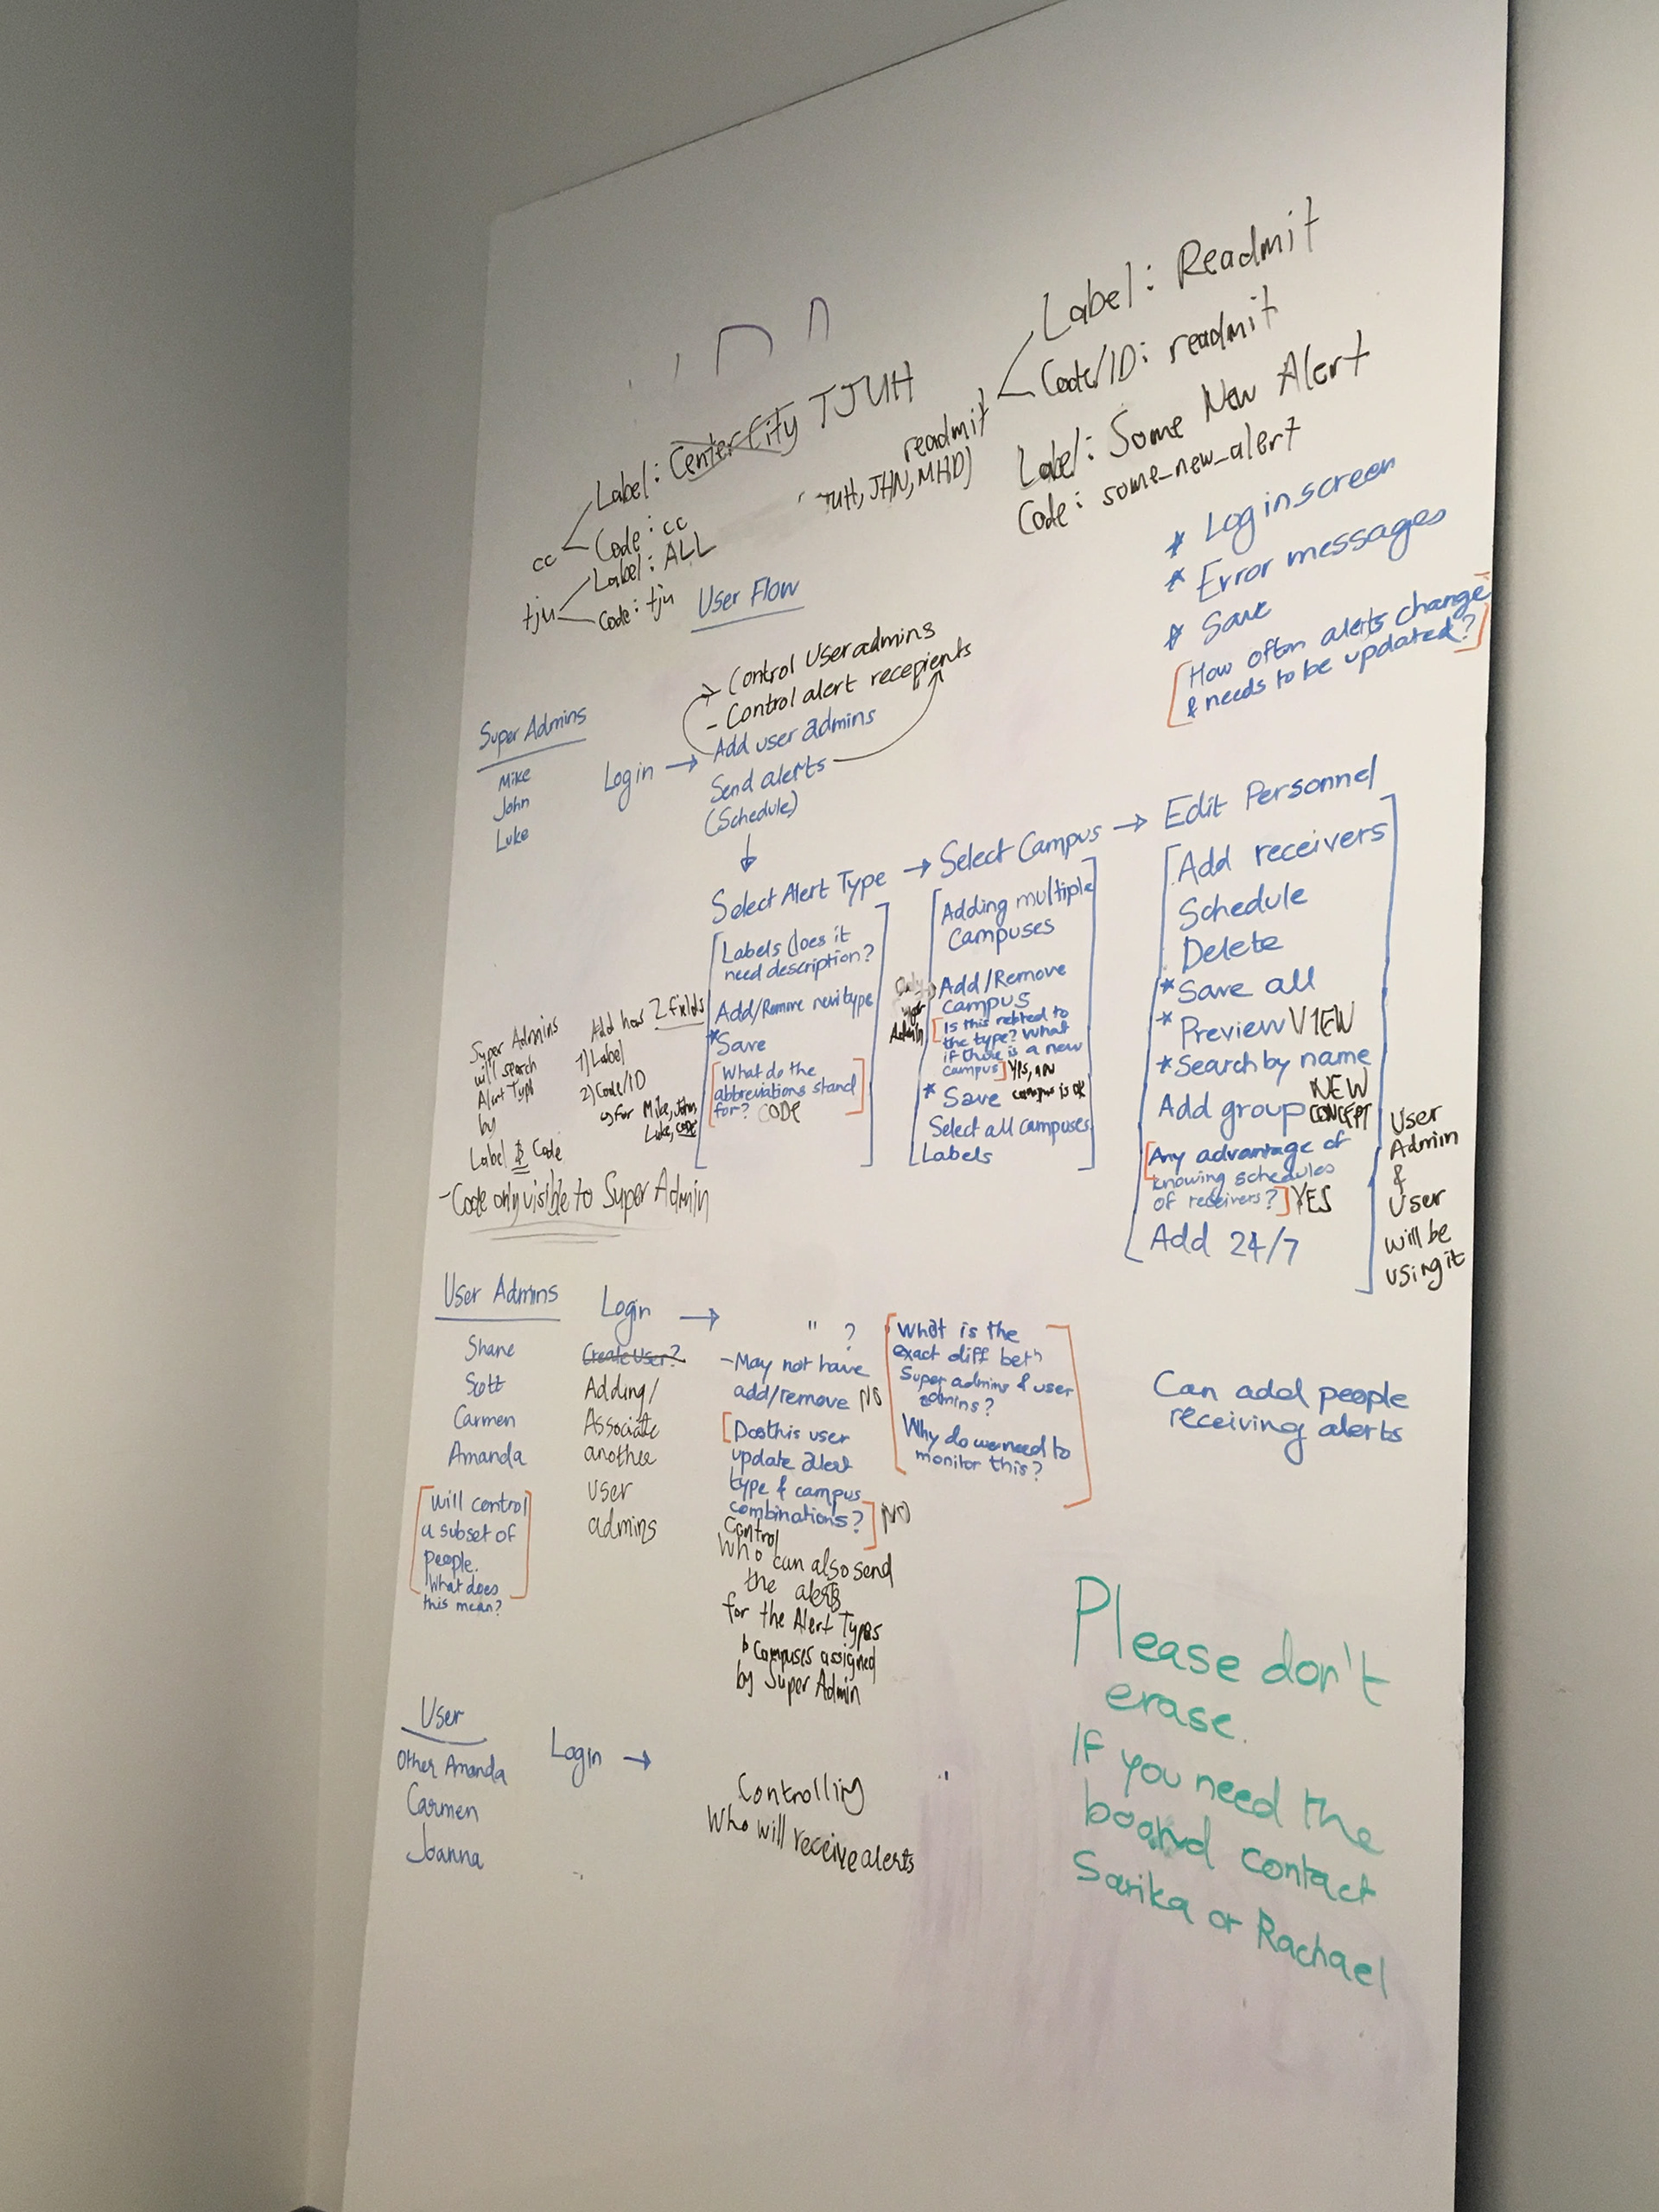 Label: Readmit
Code/ID: readmit
readmit
TJUH, JHN, MHD)
Label: Some New Alert
Code: some_new_alert
Label: Center City TJUH
cc
Code: cc
Label: ALL
tju
Code: tju
* Log in screen
* Error messages
* Save
[How often alerts change
& needs to be updated?]
User Flow
Super Admins
Mike
John
Luke
Login →
- Control Useradmins
- Control alert recepients
Add user admins
Send alerts
(Schedule)
Select Alert Type → Select Campus → Edit Personnel
Labels does it
need description?
Add/Remove new type
*Save
[What do the
abbreviations stand
for?] CODE
Adding multiple
Campuses
Add/Remove
Campus
Admin
[Is this related to
the type? What
if there is a new
campus] Yes, an
* Save campus is ok
Select all campuses
Labels
Add receivers
Schedule
Delete
*Save all
*Preview VIEW
*Search by name
Add group NEW
CONCEPT
[Any advantage of
knowing schedules
of receivers?] YES
Add 24/7
User
Admin
&
User
will be
using it
Super Admins
will search
Alert Type
by
Label & Code
Add has 2 fields
1) Label
2) Code/ID
for Mike, John
Luke, code
- Code only visible to Super Admin
User Admins
Shane
Scott
Carmen
Amanda
[will control
a subset of
people.
What does
this mean?]
Login →
Create User?
Adding/
Associate
another
user
admins
" ?
- May not have
add/remove NO
[Does this user
update alert
type & campus
combinations?] NO
Control
who can also send
the alerts
for the Alert Types
& Campuses assigned
by Super Admin
[What is the
exact diff betn
Super admins & user
admins?
Why do we need to
monitor this?]
Can add people
receiving alerts
User
Other Amanda
Carmen
Joanna
Login →
Controlling
Who will receive alerts
Please don't
erase.
If you need the
board contact
Sarika or Rachael